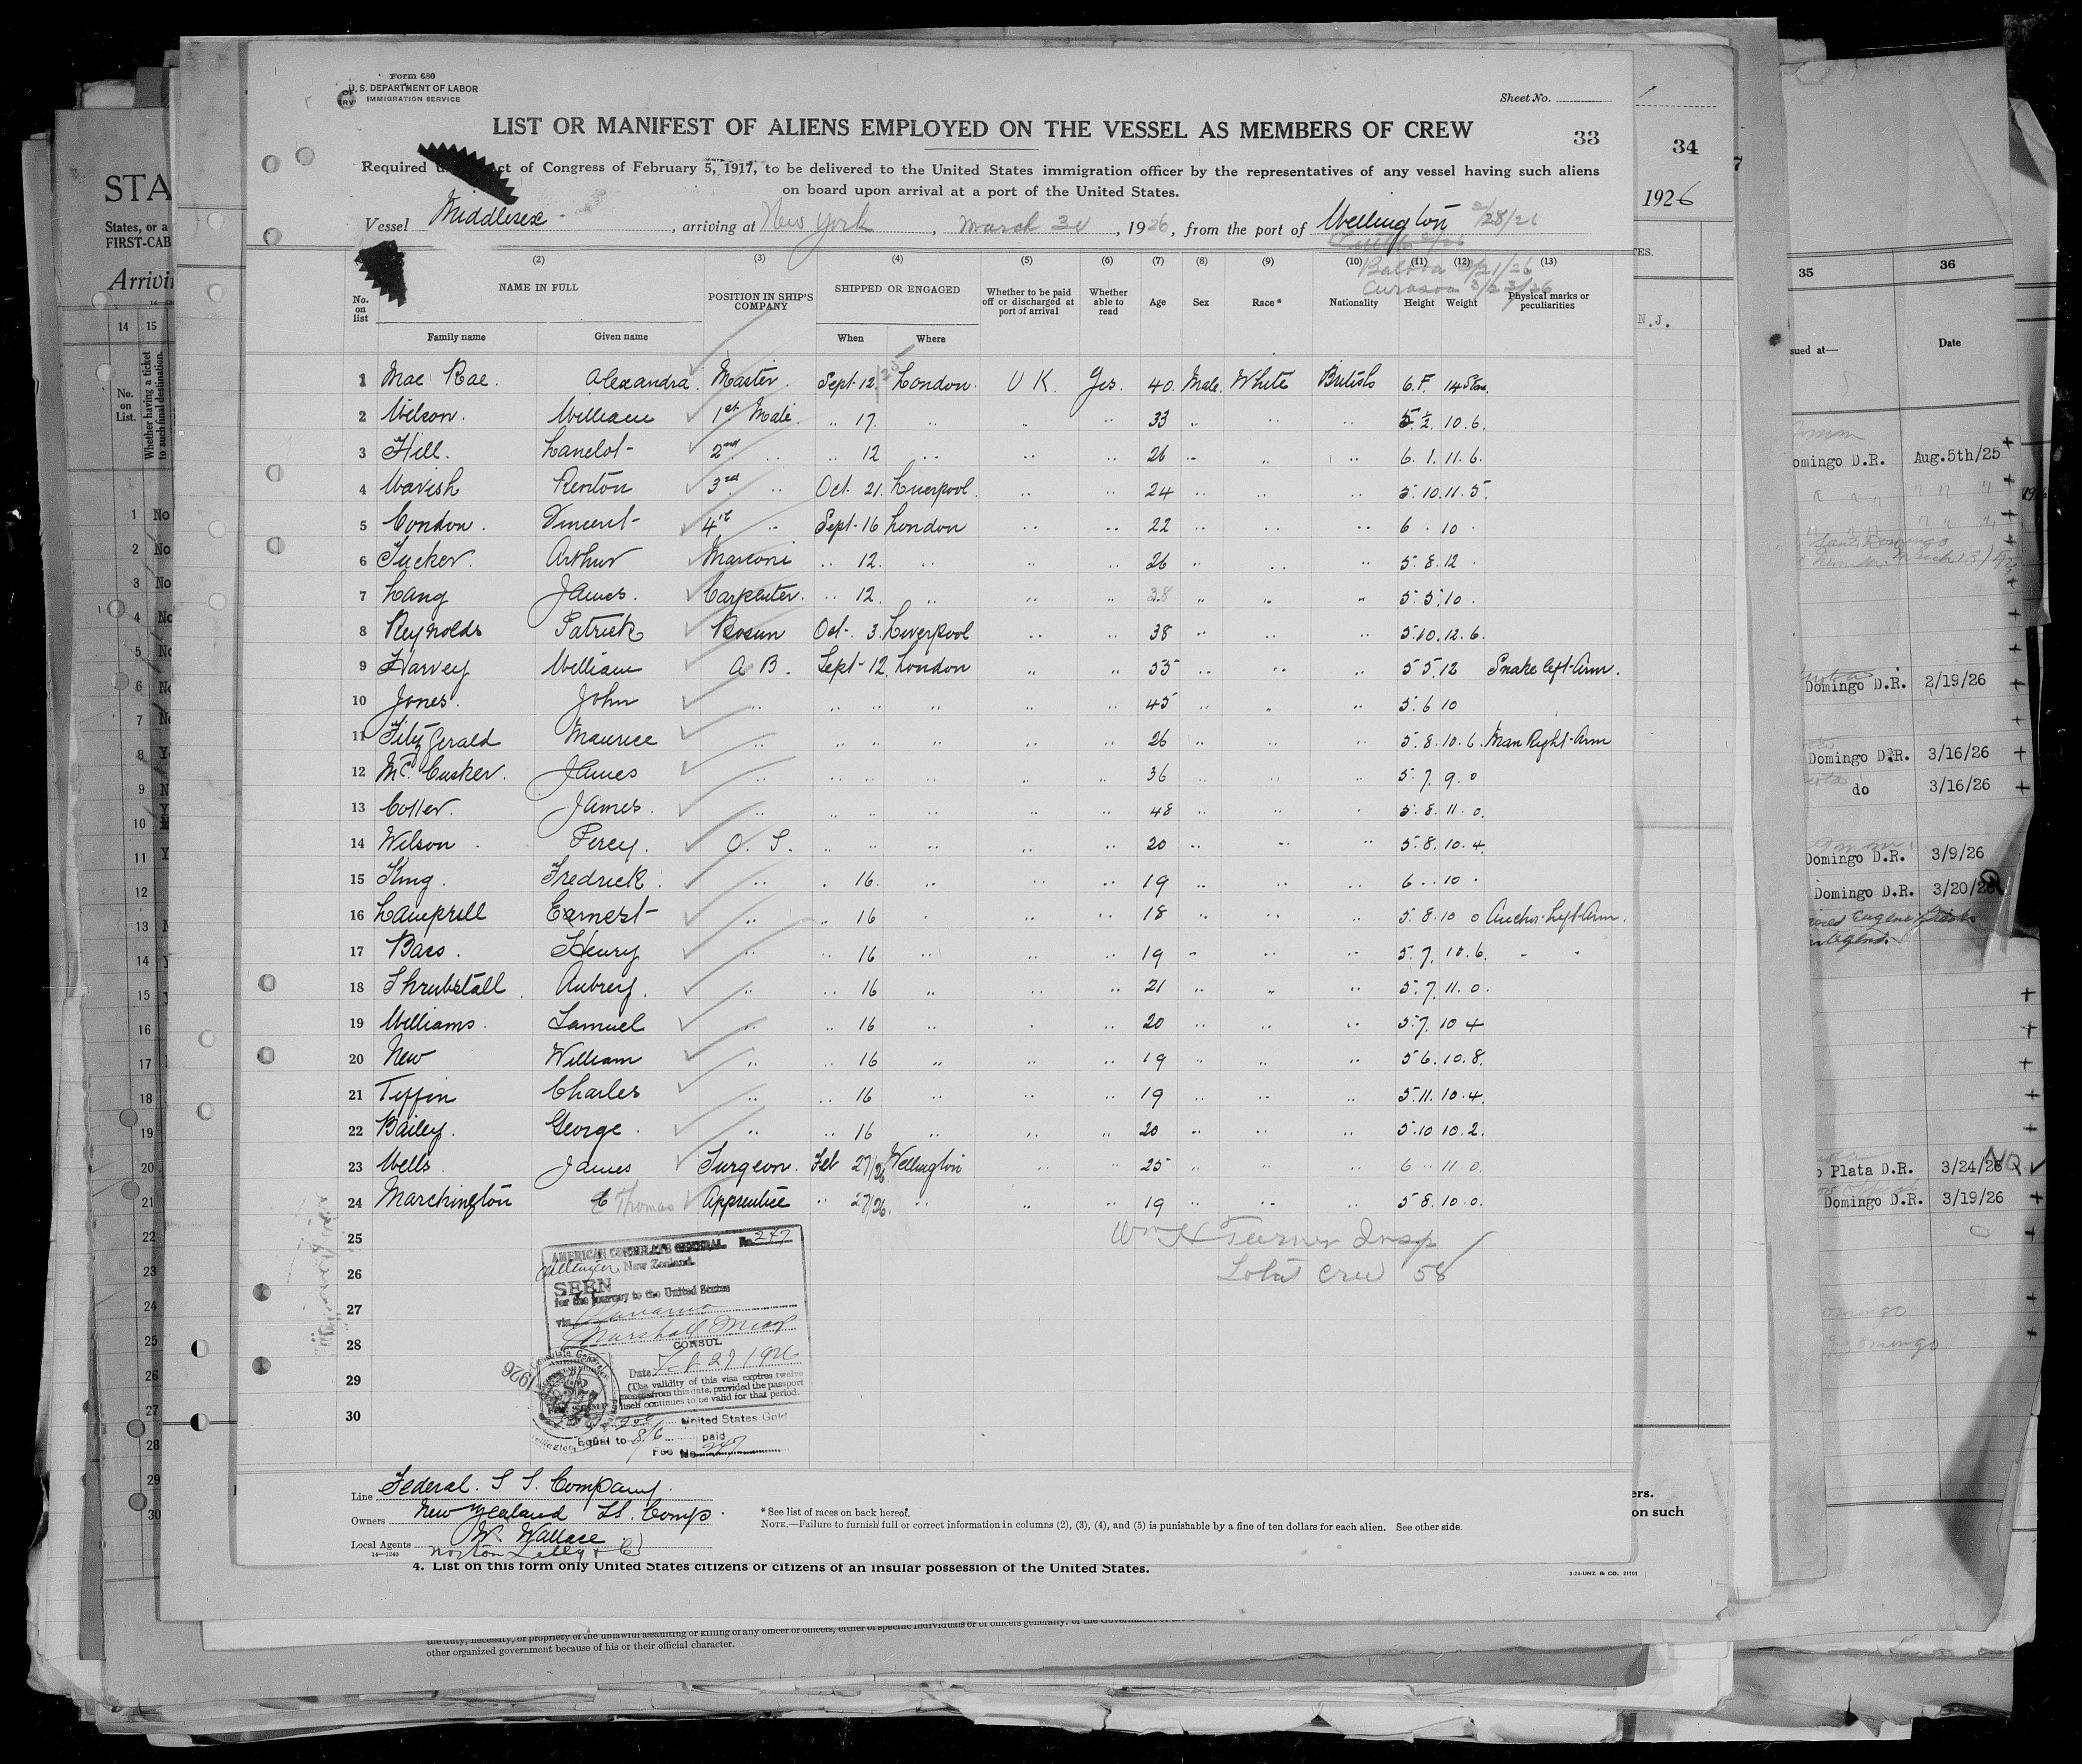 Form 680
U. S. DEPARTMENT OF LABOR
IMMIGRATION SERVICE
Sheet No.
LIST OR MANIFEST OF ALIENS EMPLOYED ON THE VESSEL AS MEMBERS OF CREW
33
Required of Congress of February 5, 1917, to be delivered to the United States immigration officer by the representatives of any vessel having such aliens
on board upon arrival at a port of the United States.
Vessel Middlesex, arriving at New York, March 30, 1926, from the port of Wellington 2/28/26
Balboa 3/21/26
Curasoa
(2) (3) (4) (5) (6) (7) (8) (9) (10) (11) (12) (13)
No. on list NAME IN FULL POSITION IN SHIP'S COMPANY SHIPPED OR ENGAGED Whether to be paid off or discharged at port of arrival Whether able to read Age Sex Race* Nationality Height Weight Physical marks or peculiarities
Family name Given name When Where
1 Mac Rae. Alexandra. Master. Sept. 12 London. U K. Yes. 40. Male. White British 6.F. 14 Stn.
2 Wilson. William 1st Mate. .. 17. .. .. .. 33 .. .. .. 5. ½. 10. 6.
3 Hill. Lancelot 2nd .. .. 12 .. .. .. 26 .. .. .. 6. 1. 11. 6.
4 Mavish Renton 3rd .. Oct. 21. Liverpool. .. .. 24 .. .. .. 5. 10. 11. 5.
5 Condon. Vincent 4th .. Sept. 16 London .. .. 22 .. .. .. 6 . 10 .
6 Tucker. Arthur Marconi .. 12. .. .. .. 26 .. .. .. 5. 8. 12 .
7 Lang James. Carpenter. .. 12. .. .. .. 38 .. .. .. 5. 5. 10 .
8 Reynolds Patrick Bosun Oct. 3. Liverpool .. .. 38 .. .. .. 5.10. 12. 6.
9 Harvey William A B. Sept. 12. London .. .. 55 .. .. .. 5 5. 12 Snake left Arm.
10 Jones. John .. .. .. .. .. .. 45 .. .. .. 5. 6 10
11 Fitzgerald Maurice .. .. .. .. .. .. 26 .. .. .. 5. 8. 10. 6. Man Right Arm
12 Mc. Cusker. James .. .. .. .. .. .. 36 .. .. .. 5. 7. 9. 0
13 Cotter. James. .. .. .. .. .. .. 48 .. .. . 5. 8. 11. 0.
14 Wilson. Percy. O. S. .. .. .. .. .. 20 .. .. .. 5. 8. 10. 4.
15 King. Fredrick. .. . 16. .. .. .. 19 .. .. .. 6 .. 10 .
16 Lamprell Earnest .. .. 16 . .. .. 18 .. .. .. 5. 8. 10 0 Anchor. Left Arm.
17 Bass. Henry .. .. 16 .. .. .. 19 .. .. .. 5. 7. 10. 6. . .
18 Shrubstall. Aubrey. .. .. 16 .. .. .. 21 .. .. .. 5. 7. 11. 0.
19 Williams. Samuel .. .. 16 .. . .. 20 .. .. .. 5. 7. 10 4
20 New William .. .. 16 .. .. .. 19 .. .. .. 5 6. 10. 8.
21 Tiffin Charles .. .. 16 .. .. .. 19 .. .. .. 5. 11. 10. 4.
22 Bailey. George. .. .. 16 .. .. .. 20 .. .. .. 5.10 10. 2.
23 Wells. James Surgeon. Feb 27/26 Wellington .. .. 25 .. .. .. 6 .. 11 0.
24 Marchington E Thomas Apprentice .. 27/26. .. .. .. 19 .. .. .. 5 8. 10. 0.
25
Wm H Turner Insp
26
Total Crew 58
27
28
29
30
AMERICAN CONSULATE GENERAL No. 247
Wellington New Zealand.
SEEN
for the journey to the United States
via Panama
CONSUL
Date Feb 27 1926
(The validity of this visa expires twelve
months from this date, provided the passport
itself continues to be valid for that period.
1926
United States Gold
Equal to 8/6 paid
Fee No. 247
Line Federal. S S. Company.
Owners New Zealand SS. Comp.
Local Agents W. Wallace
Norton Lilly & Co
14—1240
* See list of races on back hereof.
NOTE.—Failure to furnish full or correct information in columns (2), (3), (4), and (5) is punishable by a fine of ten dollars for each alien. See other side.
4. List on this form only United States citizens or citizens of an insular possession of the United States.
3-24-UNZ & CO. 21101
other organized government because of his or their official character.
34
1926
N. J.
on such
STA
States, or a
FIRST-CAB
14 15
No. on List.
Whether having a ticket to such final destination.
1 No
2 No
3 No
4 No
5 No
6 No
7
8
9
10
11
12
13
14
15
16
17
18
19
20
21
22
23
24
25
26
27
28
29
30
35 36
sued at— Date
omingo D.R. Aug.5th/25
Domingo D.R. 2/19/26
Domingo D.R. 3/16/26
do 3/16/26
Domingo D.R. 3/9/26
Domingo D.R. 3/20/26
Plata D.R. 3/24/26
Domingo D.R. 3/19/26